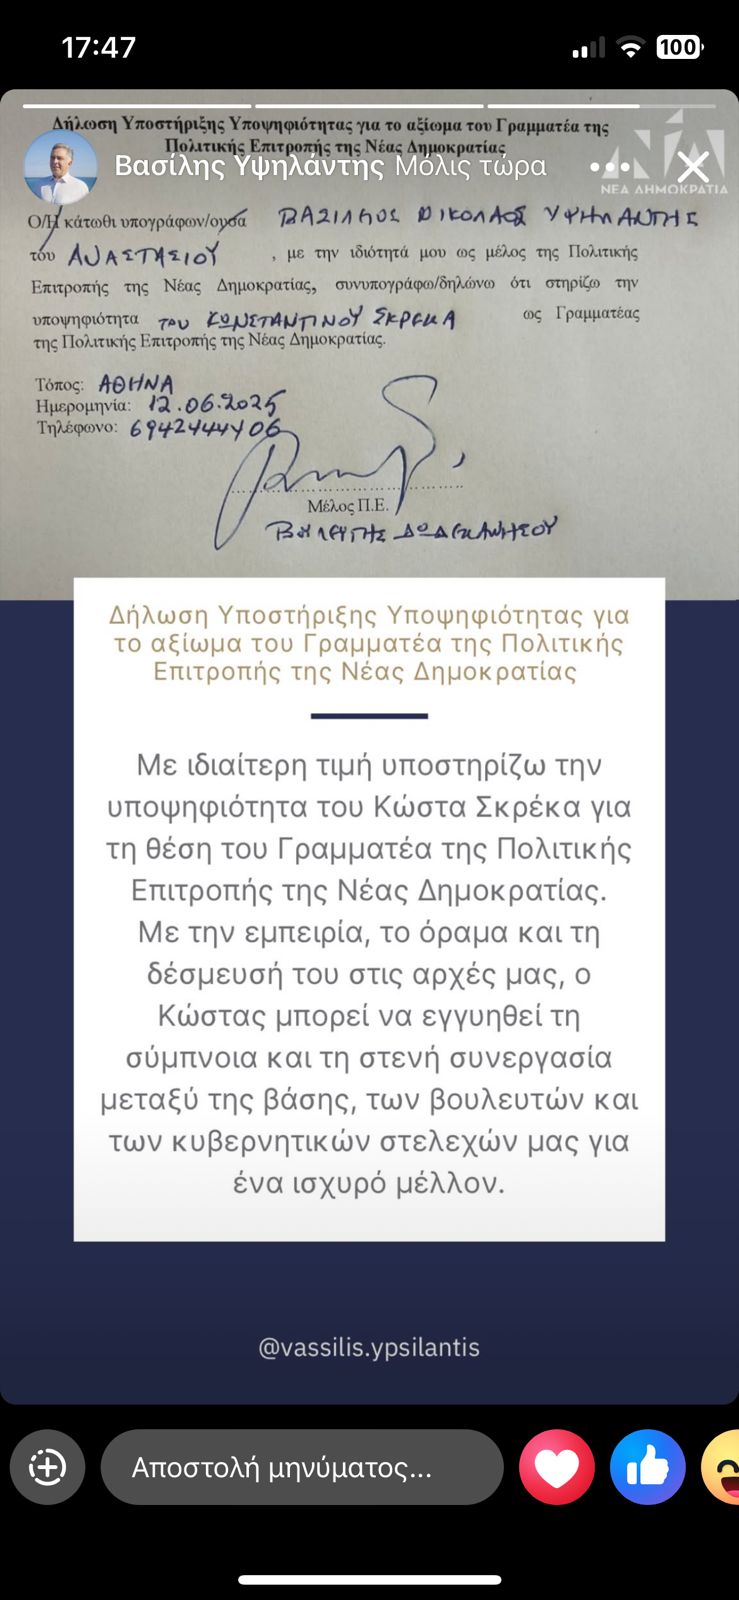 17:47
100
Δήλωση Υποστήριξης Υποψηφιότητας για το αξίωμα του Γραμματέα της
Πολιτικής Επιτροπής της Νέας Δημοκρατίας
Βασίλης Υψηλάντης Μόλις τώρα
ΝΕΑ ΔΗΜΟΚΡΑΤΙΑ
Ο/Η κάτωθι υπογράφων/ουσα ΒΑΣΙΛΕΙΟΣ ΝΙΚΟΛΑΟΣ ΥΨΗΛΑΝΤΗΣ
του ΑΝΑΣΤΑΣΙΟΥ , με την ιδιότητά μου ως μέλος της Πολιτικής
Επιτροπής της Νέας Δημοκρατίας, συνυπογράφω/δηλώνω ότι στηρίζω την
υποψηφιότητα του ΚΩΝΣΤΑΝΤΙΝΟΥ ΣΚΡΕΚΑ ως Γραμματέας
της Πολιτικής Επιτροπής της Νέας Δημοκρατίας.
Τόπος: ΑΘΗΝΑ
Ημερομηνία: 12.06.2025
Τηλέφωνο: 6942444406
Μέλος Π.Ε.
ΒΟΥΛΕΥΤΗΣ ΔΩΔΕΚΑΝΗΣΟΥ
Δήλωση Υποστήριξης Υποψηφιότητας για
το αξίωμα του Γραμματέα της Πολιτικής
Επιτροπής της Νέας Δημοκρατίας
Με ιδιαίτερη τιμή υποστηρίζω την
υποψηφιότητα του Κώστα Σκρέκα για
τη θέση του Γραμματέα της Πολιτικής
Επιτροπής της Νέας Δημοκρατίας.
Με την εμπειρία, το όραμα και τη
δέσμευσή του στις αρχές μας, ο
Κώστας μπορεί να εγγυηθεί τη
σύμπνοια και τη στενή συνεργασία
μεταξύ της βάσης, των βουλευτών και
των κυβερνητικών στελεχών μας για
ένα ισχυρό μέλλον.
@vassilis.ypsilantis
Αποστολή μηνύματος...